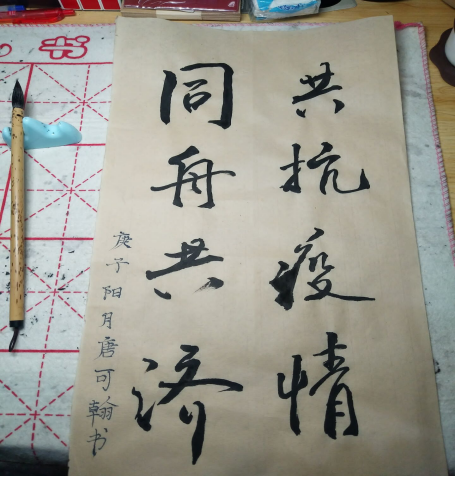 共抗疫情
同舟共济
庚子阳月唐可翰书
书